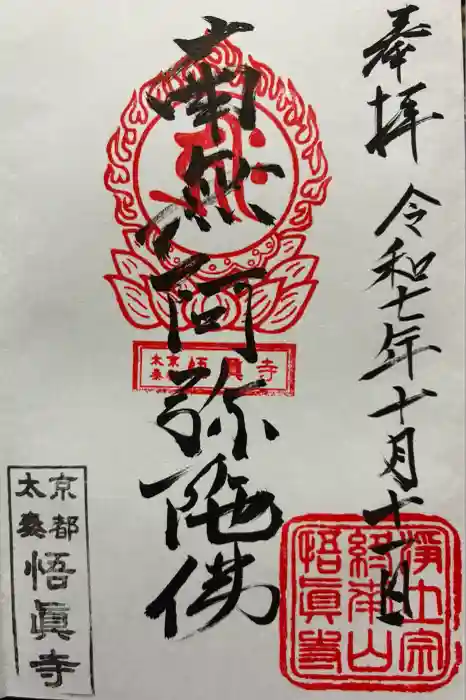 奉拝
令和七年十月十一日
南無阿弥陀佛
京都
太秦
悟眞寺
京
太秦
悟眞寺
浄土宗
総本山
悟眞寺